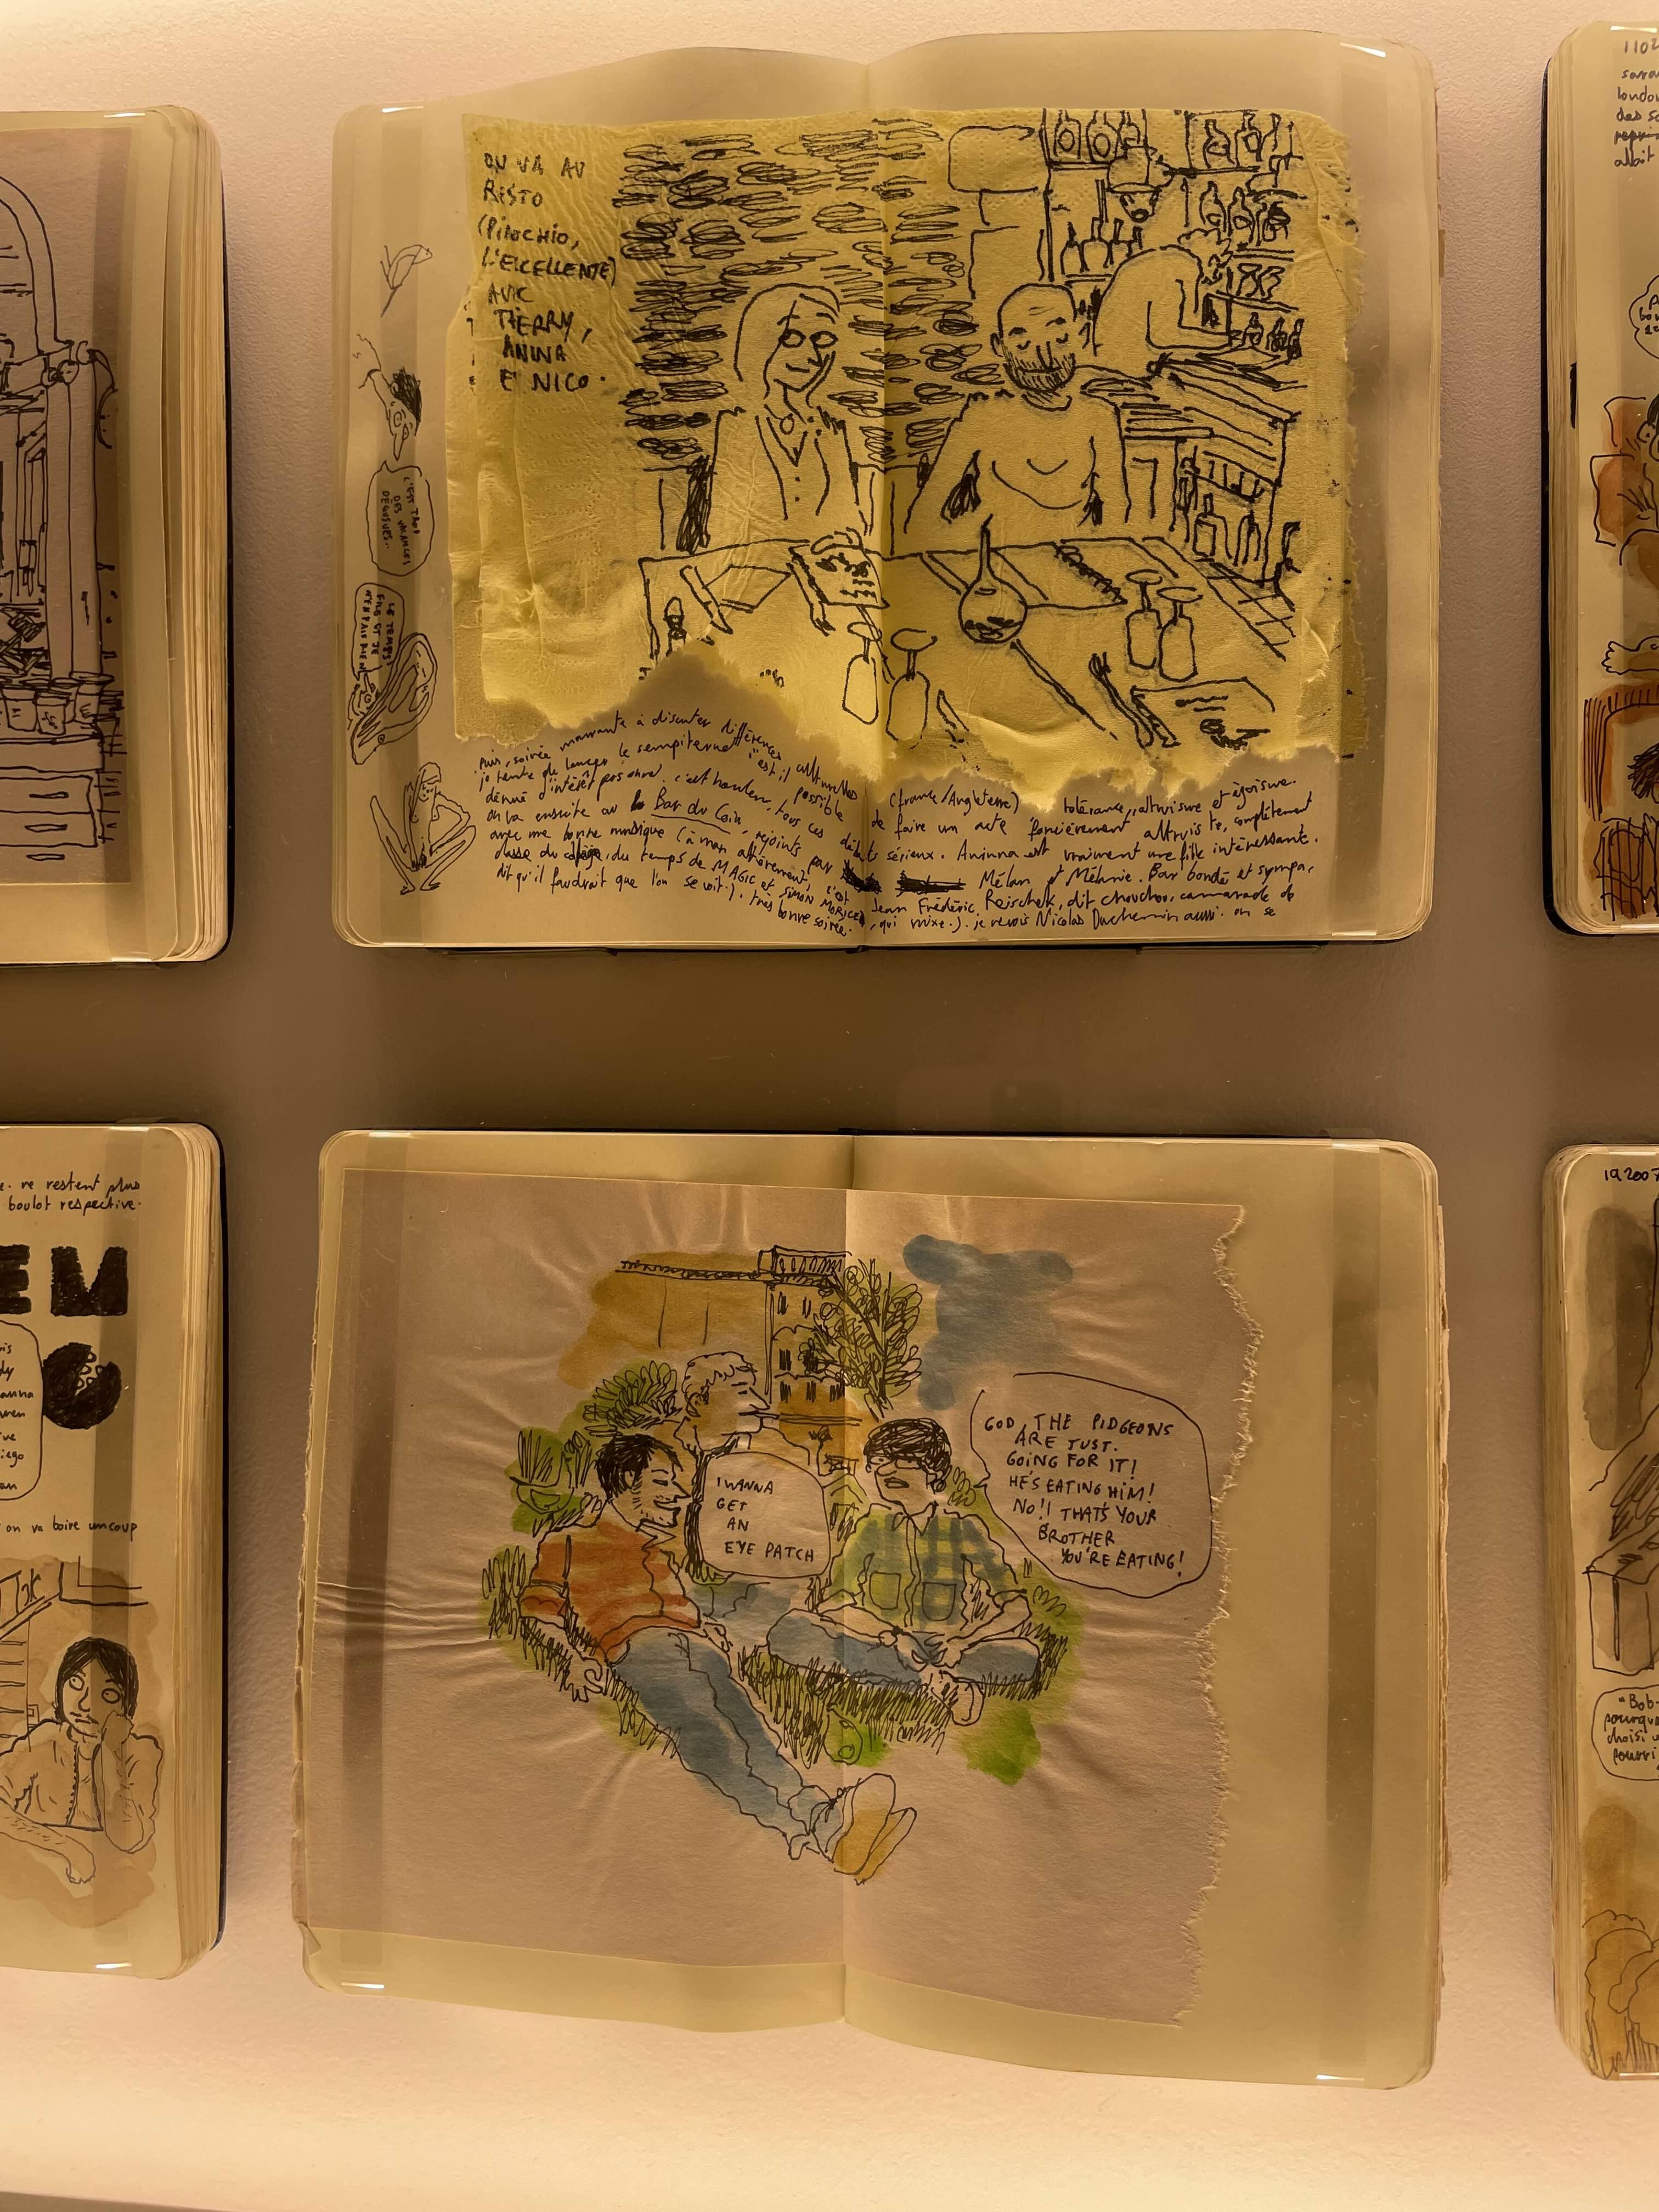 ON VA AU
RESTO
(PINOCHIO,
L'EXCELLENTE)
AVEC
THIERRY,
ANINA
E NICO.
L'EST TROP
DES VACANCES
DÉGUEUES..
LE TEMPS
FILE ET JE
N'Y PEUX RIEN
puis, soirée marrante à discuter différences culturelles (France/Angleterre) tolérance, altruisme et égoïsme.
je tente de lancer le sempiternel "est il possible de faire un acte foncièrement altruiste, complètement
dénué d'intérêt personnel. c'est houleux, tous ces débats sérieux. Aninna est vraiment une fille intéressante.
on va ensuite au Bar du Coin, rejoints par Mélan et Mélanie. Bar bondé et sympa,
avec une bonne musique (à mon attérement, c'est Jean Frédéric Reischek, dit chouchou, camarade de
classe du collège, du temps de MAGIC et SIMON MORICEAU, qui mixe.). je revois Nicolas Duchemin aussi. on se
dit qu'il faudrait que l'on se voit.). très bonne soirée.
1102
londo
des so
abait
e. ne restent plus
boulot respective.
EM
anna
iego
on va boire un coup
I WANNA
GET
AN
EYE PATCH
GOD, THE PIDGEONS
ARE JUST.
GOING FOR IT!
HE'S EATING HIM!
NO!! THAT'S YOUR
BROTHER
YOU'RE EATING!
192007
"Bob-
pourquo
choisi u
pourri